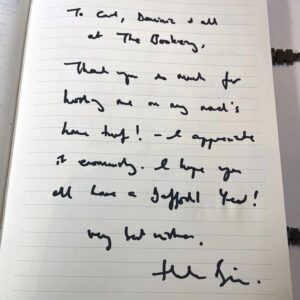 To Carl, Dominic & all
at The Bookery,
Thank you so much for
hosting me on my novel's
home turf! – I appreciate
it enormously. I hope you
all have a Daffodil Year!
very best wishes,